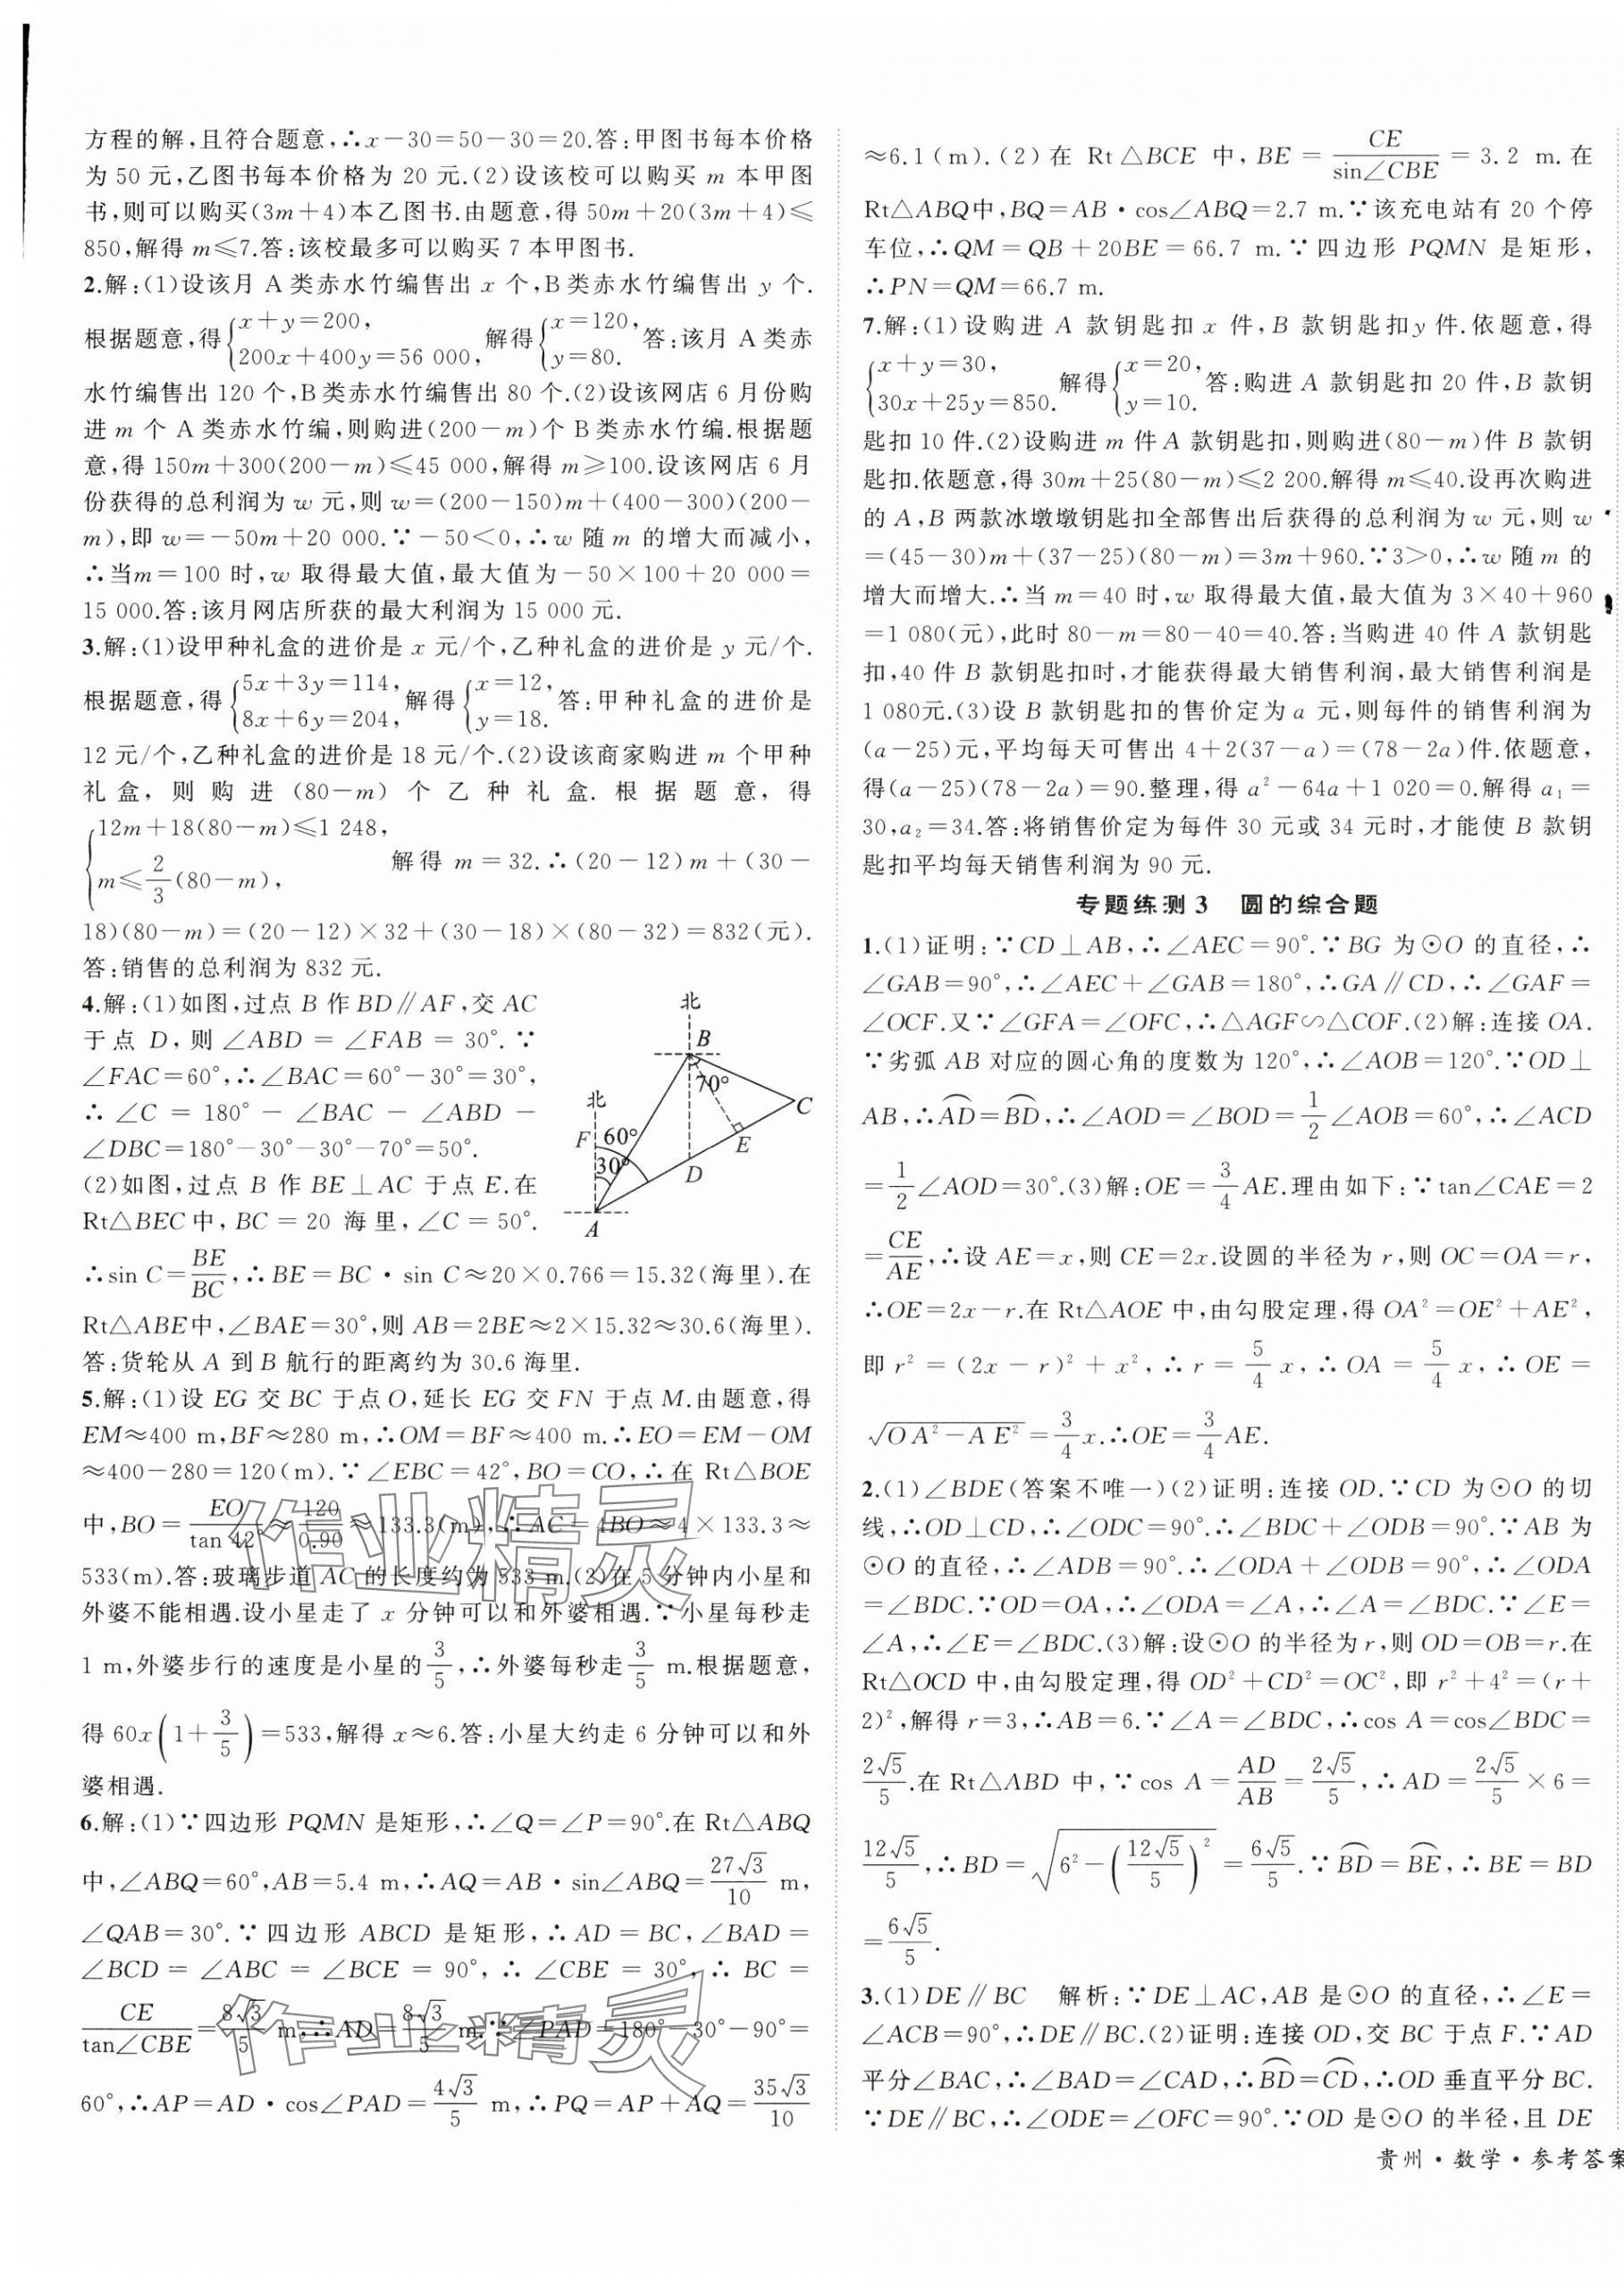 方程的解,且符合题意,∴x-30=50-30=20.答:甲图书每本价格
为50元,乙图书每本价格为20元.(2)设该校可以购买m本甲图
书,则可以购买(3m+4)本乙图书.由题意,得50m+20(3m+4)≤
850,解得m≤7.答:该校最多可以购买7本甲图书.
2.解:(1)设该月A类赤水竹编售出x个,B类赤水竹编售出y个.
根据题意,得{x+y=200, 200x+400y=56 000, 解得{x=120, y=80. 答:该月A类赤
水竹编售出120个,B类赤水竹编售出80个.(2)设该网店6月份购
进m个A类赤水竹编,则购进(200-m)个B类赤水竹编.根据题
意,得150m+300(200-m)≤45 000,解得m≥100.设该网店6月
份获得的总利润为w元,则w=(200-150)m+(400-300)(200-
m),即w=-50m+20 000.∵-50<0,∴w随m的增大而减小,
∴当m=100时,w取得最大值,最大值为-50×100+20 000=
15 000.答:该月网店所获的最大利润为15 000元.
3.解:(1)设甲种礼盒的进价是x元/个,乙种礼盒的进价是y元/个.
根据题意,得{5x+3y=114, 8x+6y=204, 解得{x=12, y=18. 答:甲种礼盒的进价是
12元/个,乙种礼盒的进价是18元/个.(2)设该商家购进m个甲种
礼盒,则购进(80-m)个乙种礼盒.根据题意,得
{12m+18(80-m)≤1 248, m≤2/3(80-m), 解得m=32.∴(20-12)m+(30-
18)(80-m)=(20-12)×32+(30-18)×(80-32)=832(元).
答:销售的总利润为832元.
4.解:(1)如图,过点B作BD∥AF,交AC
于点D,则∠ABD=∠FAB=30°.∵
∠FAC=60°,∴∠BAC=60°-30°=30°,
∴∠C=180°-∠BAC-∠ABD-
∠DBC=180°-30°-30°-70°=50°.
(2)如图,过点B作BE⊥AC于点E.在
Rt△BEC中,BC=20海里,∠C=50°.
北
B
70°
C
北
F
60°
E
30°
D
A
∴sin C=BE/BC,∴BE=BC·sin C≈20×0.766=15.32(海里).在
Rt△ABE中,∠BAE=30°,则AB=2BE≈2×15.32≈30.6(海里).
答:货轮从A到B航行的距离约为30.6海里.
5.解:(1)设EG交BC于点O,延长EG交FN于点M.由题意,得
EM≈400 m,BF≈280 m,∴OM=BF≈400 m.∴EO=EM-OM
≈400-280=120(m).∵∠EBC=42°,BO=CO,∴在Rt△BOE
中,BO=EO/tan 42°≈120/0.90≈133.3(m),∴AC=4BO≈4×133.3≈
533(m).答:玻璃步道AC的长度约为533 m.(2)在5分钟内小星和
外婆不能相遇.设小星走了x分钟可以和外婆相遇.∵小星每秒走
1 m,外婆步行的速度是小星的3/5,∴外婆每秒走3/5 m.根据题意,
得60x(1+3/5)=533,解得x≈6.答:小星大约走6分钟可以和外
婆相遇.
6.解:(1)∵四边形PQMN是矩形,∴∠Q=∠P=90°.在Rt△ABQ
中,∠ABQ=60°,AB=5.4 m,∴AQ=AB·sin∠ABQ=27√3/10 m,
∠QAB=30°.∵四边形ABCD是矩形,∴AD=BC,∠BAD=
∠BCD=∠ABC=∠BCE=90°,∴∠CBE=30°,∴BC=
CE/tan∠CBE=8√3/5 m,∴AD=8√3/5 m.∵∠PAD=180°-30°-90°=
60°,∴AP=AD·cos∠PAD=4√3/5 m,∴PQ=AP+AQ=35√3/10
≈6.1(m).(2)在Rt△BCE中,BE=CE/sin∠CBE=3.2 m.在
Rt△ABQ中,BQ=AB·cos∠ABQ=2.7 m.∵该充电站有20个停
车位,∴QM=QB+20BE=66.7 m.∵四边形PQMN是矩形,
∴PN=QM=66.7 m.
7.解:(1)设购进A款钥匙扣x件,B款钥匙扣y件.依题意,得
{x+y=30, 30x+25y=850. 解得{x=20, y=10. 答:购进A款钥匙扣20件,B款钥
匙扣10件.(2)设购进m件A款钥匙扣,则购进(80-m)件B款钥
匙扣.依题意,得30m+25(80-m)≤2 200.解得m≤40.设再次购进
的A,B两款冰墩墩钥匙扣全部售出后获得的总利润为w元,则w
=(45-30)m+(37-25)(80-m)=3m+960.∵3>0,∴w随m的
增大而增大.∴当m=40时,w取得最大值,最大值为3×40+960
=1 080(元),此时80-m=80-40=40.答:当购进40件A款钥匙
扣,40件B款钥匙扣时,才能获得最大销售利润,最大销售利润是
1 080元.(3)设B款钥匙扣的售价定为a元,则每件的销售利润为
(a-25)元,平均每天可售出4+2(37-a)=(78-2a)件.依题意,
得(a-25)(78-2a)=90.整理,得a²-64a+1 020=0.解得a₁=
30,a₂=34.答:将销售价定为每件30元或34元时,才能使B款钥
匙扣平均每天销售利润为90元.
专题练测3 圆的综合题
1.(1)证明:∵CD⊥AB,∴∠AEC=90°.∵BG为⊙O的直径,∴
∠GAB=90°,∴∠AEC+∠GAB=180°,∴GA∥CD,∴∠GAF=
∠OCF.又∵∠GFA=∠OFC,∴△AGF∽△COF.(2)解:连接OA.
∵劣弧AB对应的圆心角的度数为120°,∴∠AOB=120°.∵OD⊥
AB,∴A͡D=B͡D,∴∠AOD=∠BOD=1/2∠AOB=60°,∴∠ACD
=1/2∠AOD=30°.(3)解:OE=3/4AE.理由如下:∵tan∠CAE=2
=CE/AE,∴设AE=x,则CE=2x.设圆的半径为r,则OC=OA=r,
∴OE=2x-r.在Rt△AOE中,由勾股定理,得OA²=OE²+AE²,
即r²=(2x-r)²+x²,∴r=5/4x,∴OA=5/4x,∴OE=
√(OA²-AE²)=3/4x.∴OE=3/4AE.
2.(1)∠BDE(答案不唯一)(2)证明:连接OD.∵CD为⊙O的切
线,∴OD⊥CD,∴∠ODC=90°.∴∠BDC+∠ODB=90°.∵AB为
⊙O的直径,∴∠ADB=90°.∴∠ODA+∠ODB=90°,∴∠ODA
=∠BDC.∵OD=OA,∴∠ODA=∠A,∴∠A=∠BDC.∵∠E=
∠A,∴∠E=∠BDC.(3)解:设⊙O的半径为r,则OD=OB=r.在
Rt△OCD中,由勾股定理,得OD²+CD²=OC²,即r²+4²=(r+
2)²,解得r=3,∴AB=6.∵∠A=∠BDC,∴cos A=cos∠BDC=
2√5/5.在Rt△ABD中,∵cos A=AD/AB=2√5/5,∴AD=2√5/5×6=
12√5/5,∴BD=√(6²-(12√5/5)²)=6√5/5.∵B͡D=B͡E,∴BE=BD
=6√5/5.
3.(1)DE∥BC 解析:∵DE⊥AC,AB是⊙O的直径,∴∠E=
∠ACB=90°,∴DE∥BC.(2)证明:连接OD,交BC于点F.∵AD
平分∠BAC,∴∠BAD=∠CAD,∴B͡D=C͡D,∴OD垂直平分BC.
∵DE∥BC,∴∠ODE=∠OFC=90°.∵OD是⊙O的半径,且DE
贵州·数学·参考答案
作业精灵
作业精灵